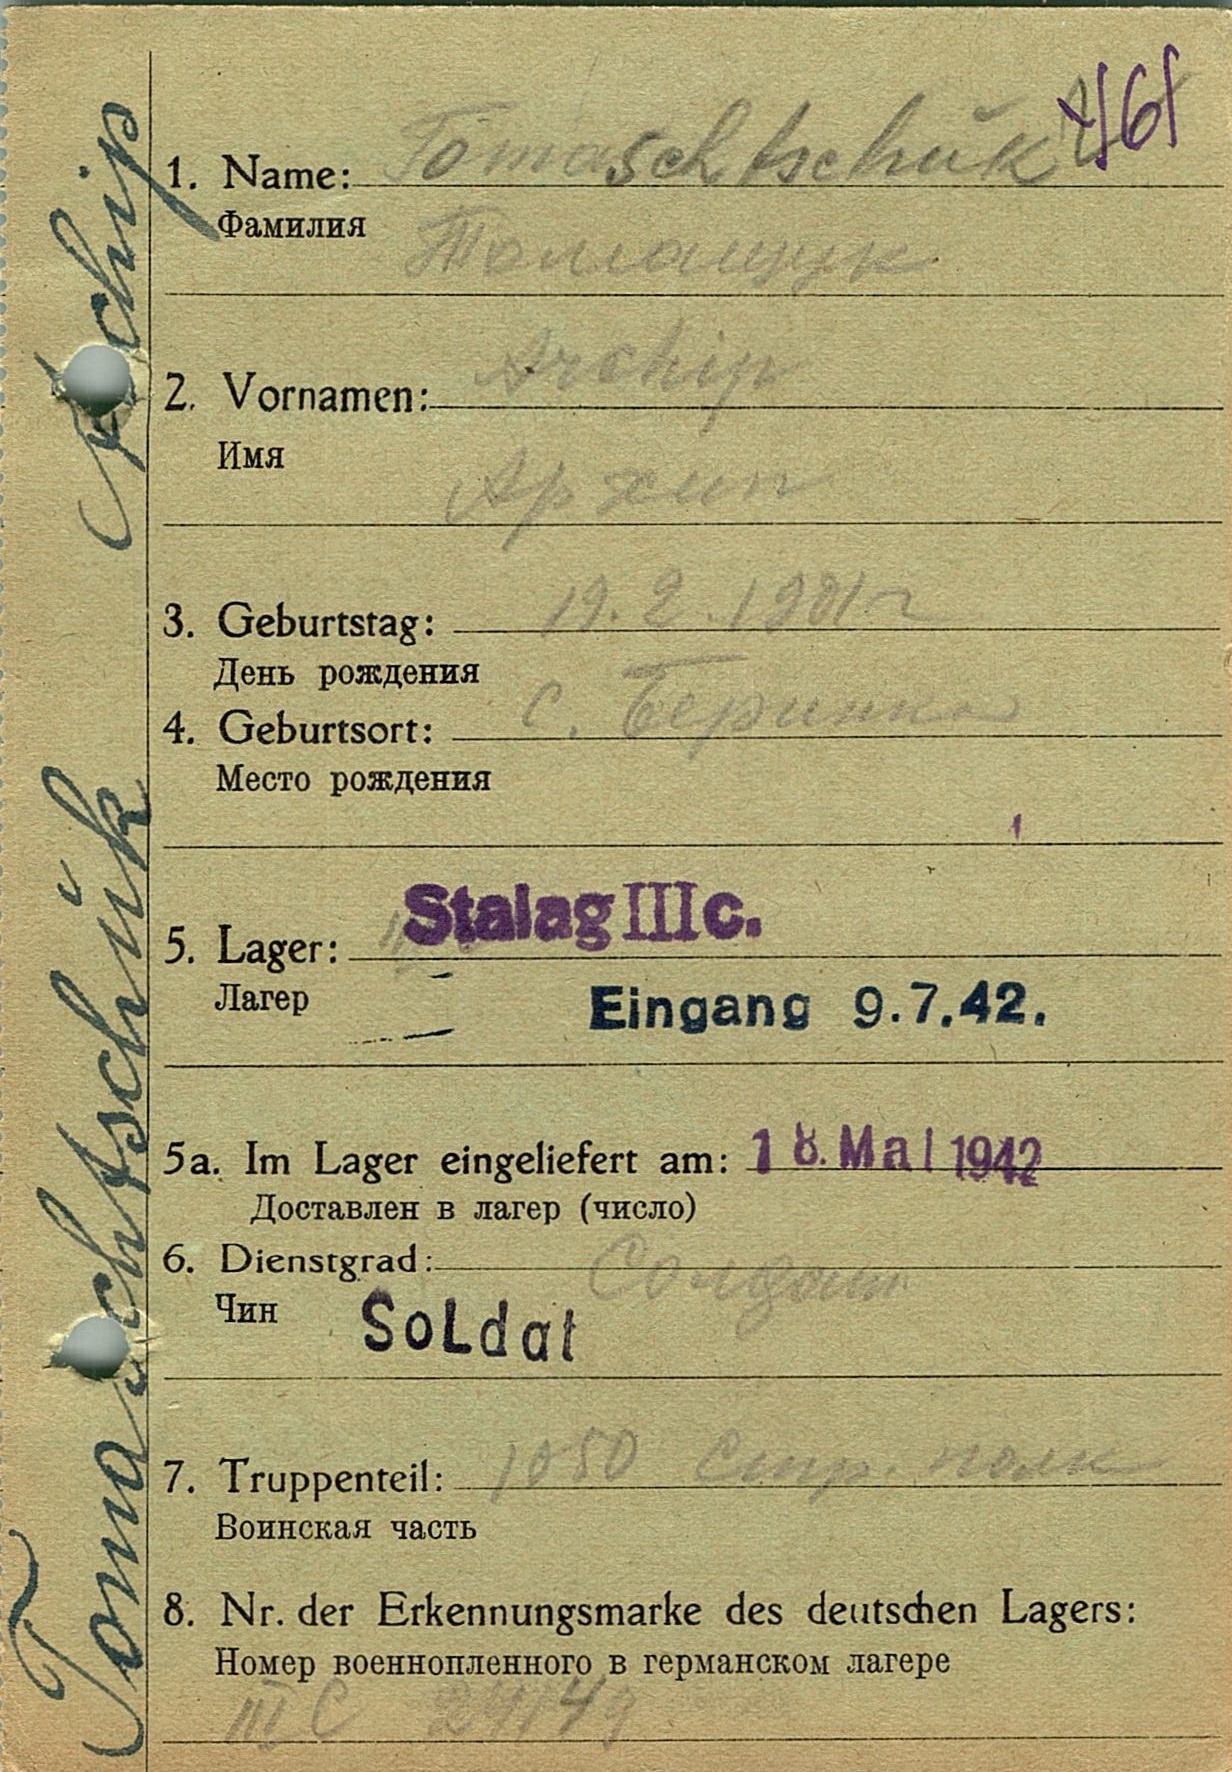 761
1. Name: Tomaschtschuk
Фамилия Томащук
2. Vornamen: Archip
Имя Архип
3. Geburtstag: 19.2.1901г
День рождения
4. Geburtsort: с.
Место рождения
5. Lager: Stalag IIIc.
Лагер Eingang 9.7.42.
5a. Im Lager eingeliefert am: 18. Mai 1942
Доставлен в лагер (число)
6. Dienstgrad: Солдат
Чин Soldat
7. Truppenteil: 1050 Стр. полк
Воинская часть
8. Nr. der Erkennungsmarke des deutschen Lagers:
Номер военнопленного в германском лагере
III C
Tomaschtschuk Archip